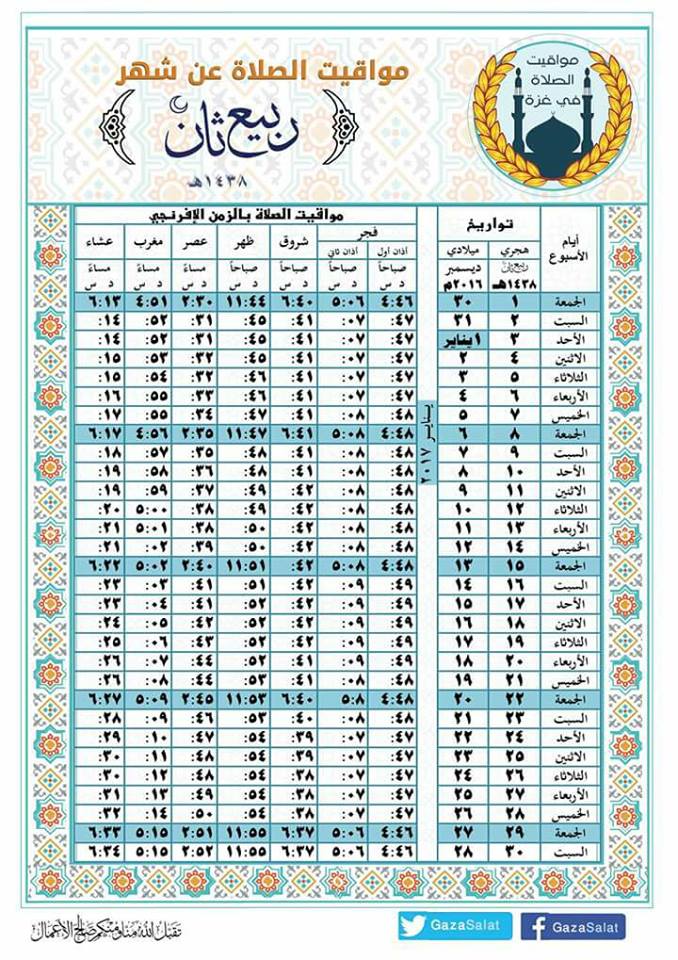 مواقيت الصلاة في غزة
مواقيت الصلاة عن شهر
ربيع ثان
١٤٣٨هـ
أيام الأسبوع
تواريخ
هجري ربيع ثان ١٤٣٨هـ
ميلادي ديسمبر ٢٠١٦م
مواقيت الصلاة بالزمن الإفرنجي
فجر شروق ظهر عصر مغرب عشاء
أذان أول أذان ثاني
صباحاً صباحاً صباحاً صباحاً مساءً مساءً مساءً
د س د س د س د س د س د س د س
الجمعة ١ ٣٠ ٤:٤٦ ٥:٠٦ ٦:٤٠ ١١:٤٤ ٢:٣٠ ٤:٥١ ٦:١٣
السبت ٢ ٣١ ٤٧: ٠٧: ٤١: ٤٥: ٣١: ٥٢: ١٤:
الأحد ٣ ١ يناير ٤٧: ٠٧: ٤١: ٤٥: ٣١: ٥٢: ١٤:
الاثنين ٤ ٢ ٤٧: ٠٧: ٤١: ٤٥: ٣٢: ٥٣: ١٥:
الثلاثاء ٥ ٣ ٤٧: ٠٧: ٤١: ٤٦: ٣٢: ٥٤: ١٥:
الأربعاء ٦ ٤ ٤٧: ٠٧: ٤١: ٤٦: ٣٣: ٥٥: ١٦:
الخميس ٧ ٥ ٤٨: ٠٨: ٤١: ٤٧: ٣٤: ٥٥: ١٧:
يناير ٢٠١٧
الجمعة ٨ ٦ ٤:٤٨ ٥:٠٨ ٦:٤١ ١١:٤٧ ٢:٣٥ ٤:٥٦ ٦:١٧
السبت ٩ ٧ ٤٨: ٠٨: ٤١: ٤٨: ٣٥: ٥٧: ١٨:
الأحد ١٠ ٨ ٤٨: ٠٨: ٤١: ٤٨: ٣٦: ٥٨: ١٩:
الاثنين ١١ ٩ ٤٨: ٠٨: ٤٢: ٤٩: ٣٧: ٥٩: ١٩:
الثلاثاء ١٢ ١٠ ٤٨: ٠٨: ٤٢: ٤٩: ٣٨: ٥:٠٠ ٢٠:
الأربعاء ١٣ ١١ ٤٨: ٠٨: ٤٢: ٥٠: ٣٨: ٥:٠١ ٢١:
الخميس ١٤ ١٢ ٤٨: ٠٨: ٤٢: ٥٠: ٣٩: ٠٢: ٢١:
الجمعة ١٥ ١٣ ٤:٤٨ ٥:٠٨ ٤٢: ١١:٥١ ٢:٤٠ ٥:٠٢ ٦:٢٢
السبت ١٦ ١٤ ٤٩: ٠٩: ٤٢: ٥١: ٤١: ٠٣: ٢٣:
الأحد ١٧ ١٥ ٤٩: ٠٩: ٤٢: ٥٢: ٤١: ٠٤: ٢٣:
الاثنين ١٨ ١٦ ٤٩: ٠٩: ٤٢: ٥٢: ٤٢: ٠٥: ٢٤:
الثلاثاء ١٩ ١٧ ٤٩: ٠٩: ٤٢: ٥٢: ٤٣: ٠٦: ٢٥:
الأربعاء ٢٠ ١٨ ٤٩: ٠٩: ٤١: ٥٣: ٤٤: ٠٧: ٢٦:
الخميس ٢١ ١٩ ٤٨: ٠٨: ٤١: ٥٣: ٤٤: ٠٨: ٢٦:
الجمعة ٢٢ ٢٠ ٤:٤٨ ٥:٨ ٦:٤٠ ١١:٥٣ ٢:٤٥ ٥:٠٩ ٦:٢٧
السبت ٢٣ ٢١ ٤٨: ٠٨: ٤٠: ٥٣: ٤٦: ٠٩: ٢٨:
الأحد ٢٤ ٢٢ ٤٧: ٠٧: ٣٩: ٥٤: ٤٧: ١٠: ٢٩:
الاثنين ٢٥ ٢٣ ٤٧: ٠٧: ٣٩: ٥٤: ٤٨: ١١: ٣٠:
الثلاثاء ٢٦ ٢٤ ٤٧: ٠٧: ٣٨: ٥٤: ٤٨: ١٢: ٣٠:
الأربعاء ٢٧ ٢٥ ٤٧: ٠٧: ٣٨: ٥٤: ٤٩: ١٣: ٣١:
الخميس ٢٨ ٢٦ ٤٧: ٠٧: ٣٨: ٥٤: ٥٠: ١٤: ٣٢:
الجمعة ٢٩ ٢٧ ٤:٤٦ ٥:٠٦ ٦:٣٧ ١١:٥٥ ٢:٥١ ٥:١٥ ٦:٣٣
السبت ٣٠ ٢٨ ٤:٤٦ ٥:٠٦ ٦:٣٧ ١١:٥٥ ٢:٥٢ ٥:١٥ ٦:٣٤
GazaSalat
GazaSalat
تقبل الله منا ومنكم صالح الأعمال